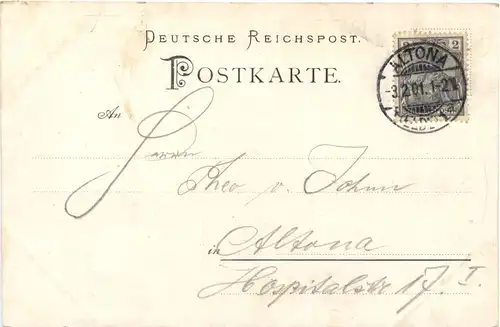 DEUTSCHE REICHSPOST.
POSTKARTE.
2 2
ALTONA
3.2.01. 1-2
An
Herrn
Theo v. John
in Altona
Hospitalstr 17. I.